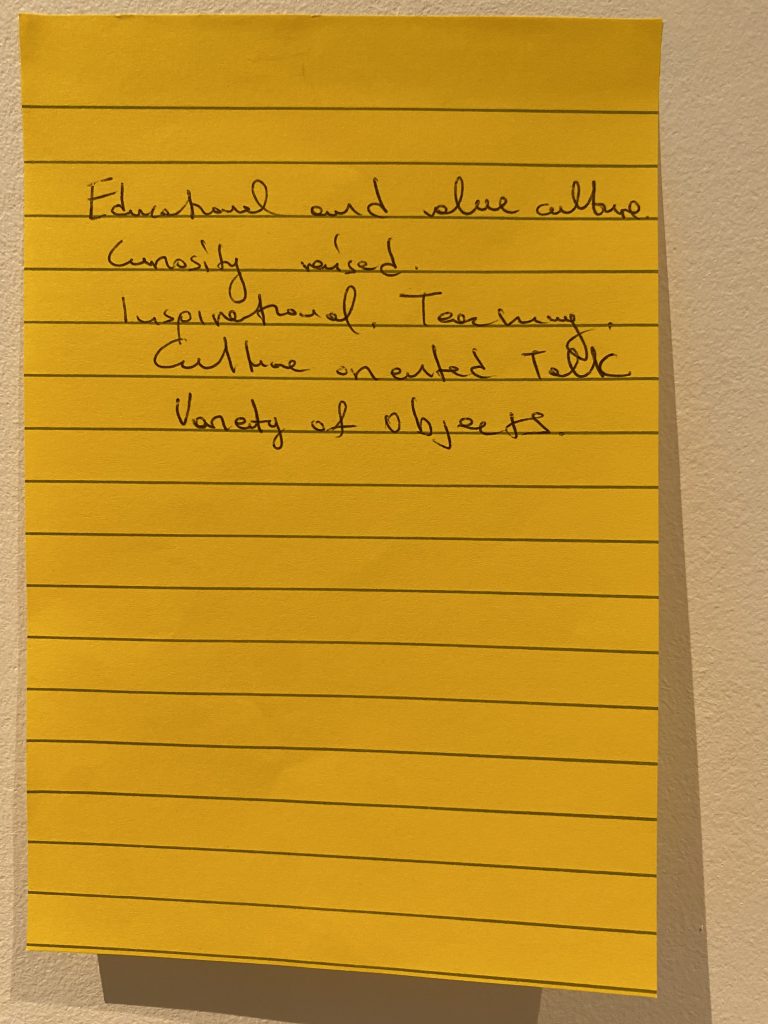 Educational and value culture.
Curiosity raised.
Inspirational. Teaching.
Culture oriented Talk
Variety of objects.